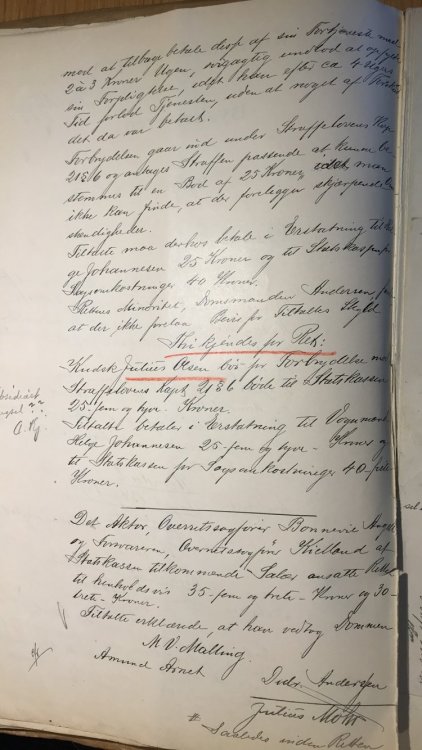 mod at tilbagebetale desp af sin Fortjeneste med
2 à 3 Kroner Ugen, undlod at opfylde
sin Forpligtelse, idet han efter ca 4 Ugers
Tid forlod Tjenesten, uden at noget af
det da var betalt.
Forbrydelsen gaar ind under Straffelovens Kap
21 § 6 og ansees Straffen passende at kunne be-
stemmes til en Bod af 25 Kroner, idet man
ikke kan finde, at der foreligger skjærpende Om-
stendigheder.
Tiltalte maa derhos betale i Erstatning til Hel-
ge Johannesen 25 Kroner og til Statskassen for
Sagsomkostninger 40 Kroner.
Rettens Minoritet, Domsmanden Andersen,
at der ikke forelaa Bevis for Tiltaltes Skyld
Thi kjendes for Ret:
Kudsk Julius Olsen bør for Forbrydelse mod
Straffelovens Kapt. 21 § 6 bøde til Statskassen
25 - fem og tyve - Kroner.
Tiltalte betaler i Erstatning til Vognmand
Helge Johannesen 25 - fem og tyve - Kroner og
til Statskassen for Sagsomkostninger 40 - firti
Kroner.
Det Aktor, Overretssagfører Bonnevie Angell
og Forsvareren, Overretssagfører Kielland af
Statskassen tilkommende Salær ansatte Retten
til henholdsvis 35 - fem og treti - Kroner og 30 -
treti - Kroner.
Tiltalte erklærede, at han vedtog Dommen
M. V. Malling.
Amund Arnet
Andersen
Julius
# Saaledes inden Retten